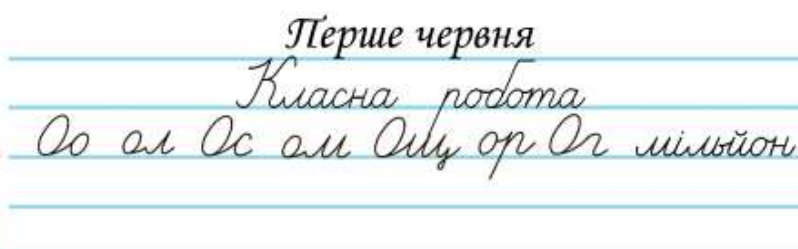 Перше червня
Класна робота
Оо ол Ос ом Ощ ор Ог мільйон